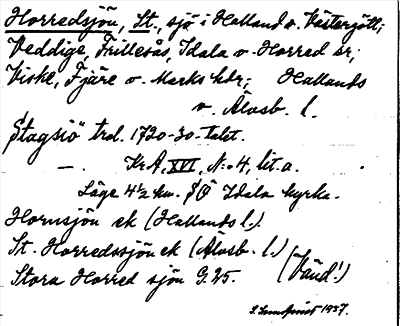 Horredsjön, St., sjö i Halland o. Västergötl;
Veddige, Frillesås, Idala o. Horred sr;
Viske, Fjäre o. Marks hdr; Hallands
o. Älvsb. l.
"Stagsiö" trol. 1720-30-talet.
— Kr A, XVI, N:o 4, lit. a.
Läge 4½ km. SÖ Idala kyrka.
Hornsjön ek (Hallands l.)
St. Horredssjön ek (Älvsb. l.)
Stora Horred sjön G. 25. (Vänd!)
1937.